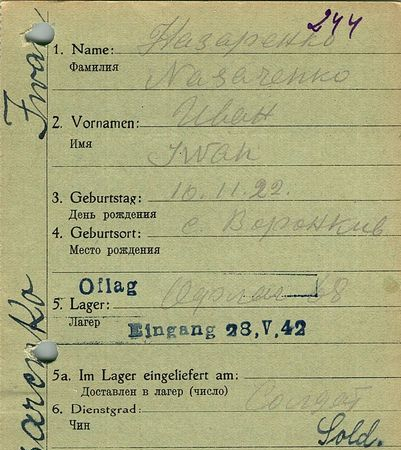 244
1. Name: Назаренко
Фамилия
Nasarenko
2. Vornamen: Иван
Имя
Iwan
3. Geburtstag: 16.11.22.
День рождения
4. Geburtsort: с Воронкив
Место рождения
Oflag
5. Lager: Офлаг 68
Лагер
Eingang 28,V,42
5a. Im Lager eingeliefert am:
Доставлен в лагер (число)
6. Dienstgrad: Солдат
Чин
Sold.
Iwan
arenko